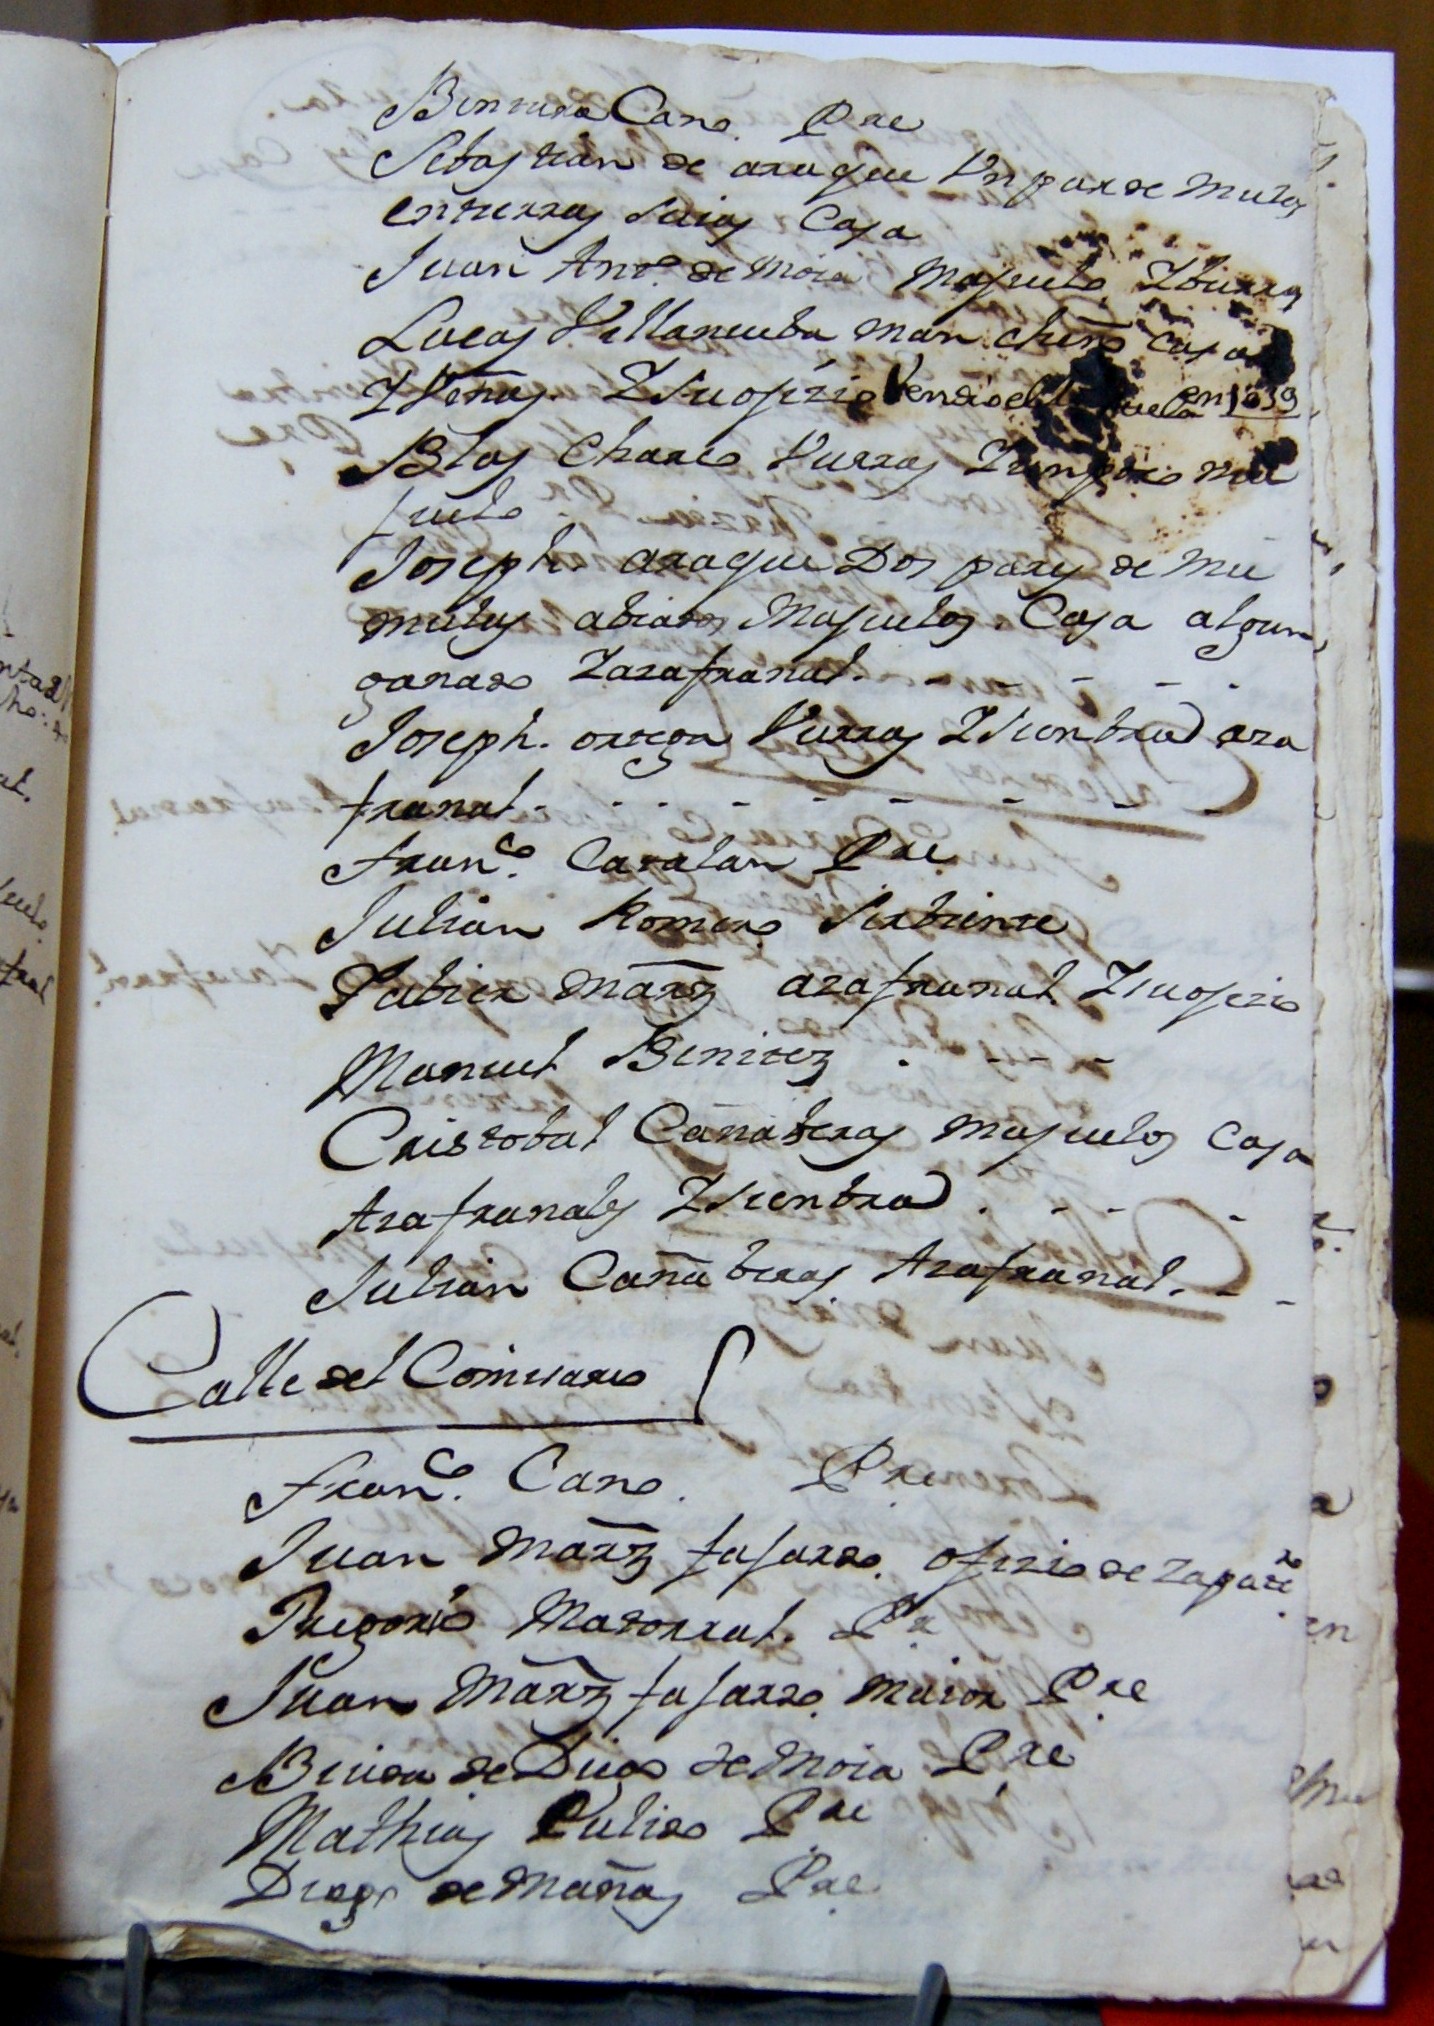 Bentura Cano. Pre
Sebastian de araque Un par de mulas
en tierras suias Casa
Juan Anto. de Moia Majuelo. Yburras
Lucas Villanueba Mancheño casa
Y Viñas. Y su ofizio Vendio el en 1739
Blas Charco Burras Y un poco ma
juelo
Joseph. araque Dos pares de mu
mulas abiados Majuelos. Casa algun
ganado Yazafranal. - - - - -
Joseph. ortega Burras Y siembra aza
franal. - - - - - - - -
Franco. Catalan Pre
Julian Romero. Serbiente
Jabier Marz azafranal Y su ofizio
Manuel Benitez . - - -
Cristobal Cañaberas Majuelos Casa
Azafranales Y siembra . - - -
Julian Cañaberas Azafranal. - -
Calle del Comisario
Franco. Cano. Pre
Juan Marz fajardo. ofizio de zapatero
Gregorio Madorral. Pe
Juan Marz fajardo. maior Pre
Biuda de Diego de Moia Pre
Mathias Pulido Pre
Diego de Mañas Pre